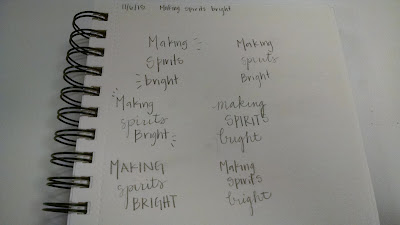 11/6/15 Making spirits bright
Making
Spirits
bright
Making
spirits
Bright
Making
spirits
Bright
making
SPIRITS
bright
MAKING
spirits
BRIGHT
Making
spirits
bright